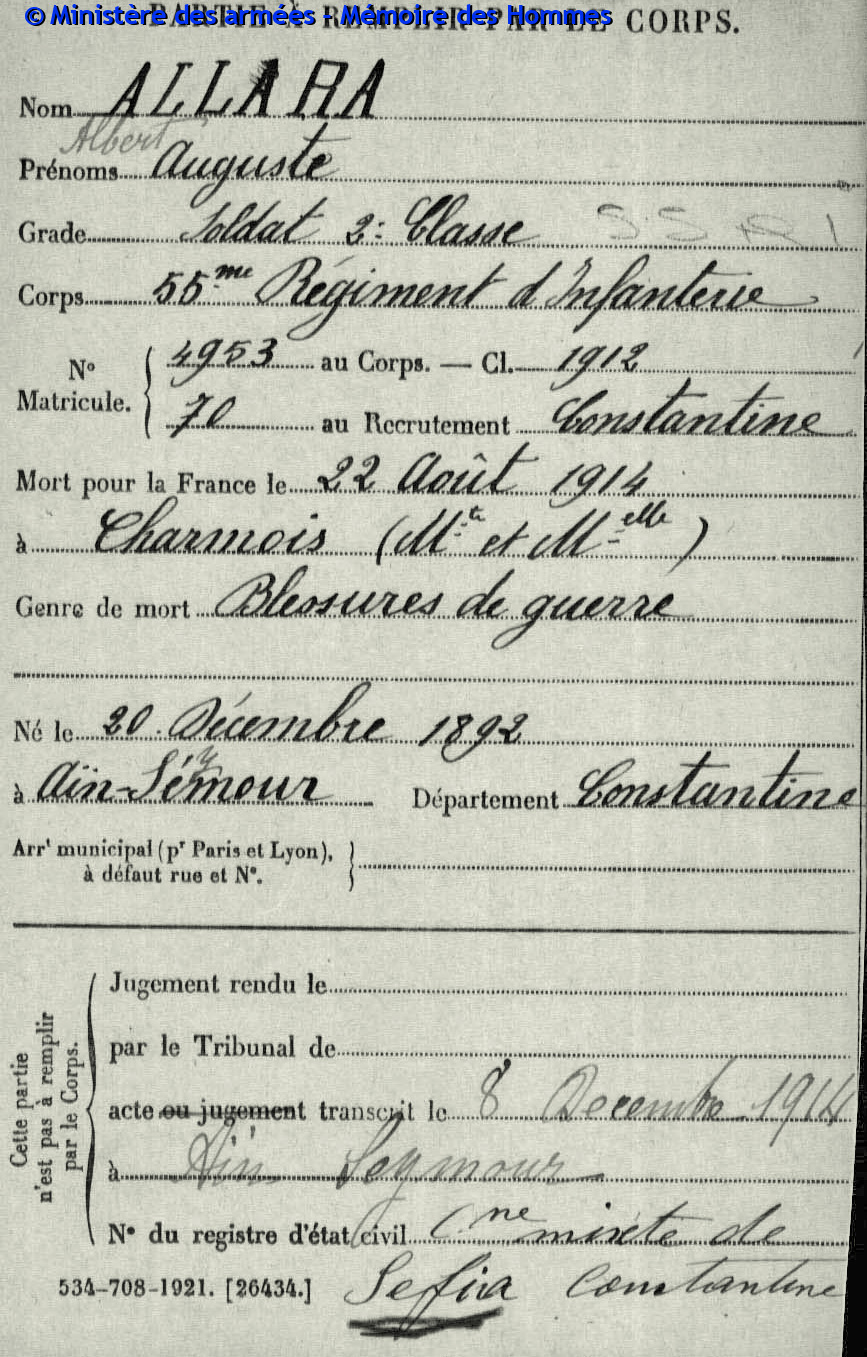 © Ministère des armées - Mémoire des Hommes
PARTIE À REMPLIR PAR LE CORPS.
Nom ALLARA
Albert
Prénoms Auguste
Grade Soldat 2e Classe
Corps 55me Régiment d'Infanterie
No Matricule. { 4953 au Corps. — Cl. 1912
70 au Recrutement Constantine
Mort pour la France le 22 Août 1914
à Charmois (Mthe et Melle)
Genre de mort Blessures de guerre
Né le 20 Décembre 1892
y
à Aïn-Sémour Département Constantine
Arrt municipal (pr Paris et Lyon),
à défaut rue et No.
Cette partie
n'est pas à remplir
par le Corps.
Jugement rendu le
par le Tribunal de
acte ou jugement transcrit le 8 Decembre 1914
à Ain Seymour
No du registre d'état civil Cne mixte de
534-708-1921. [26434.] Sefia Constantine